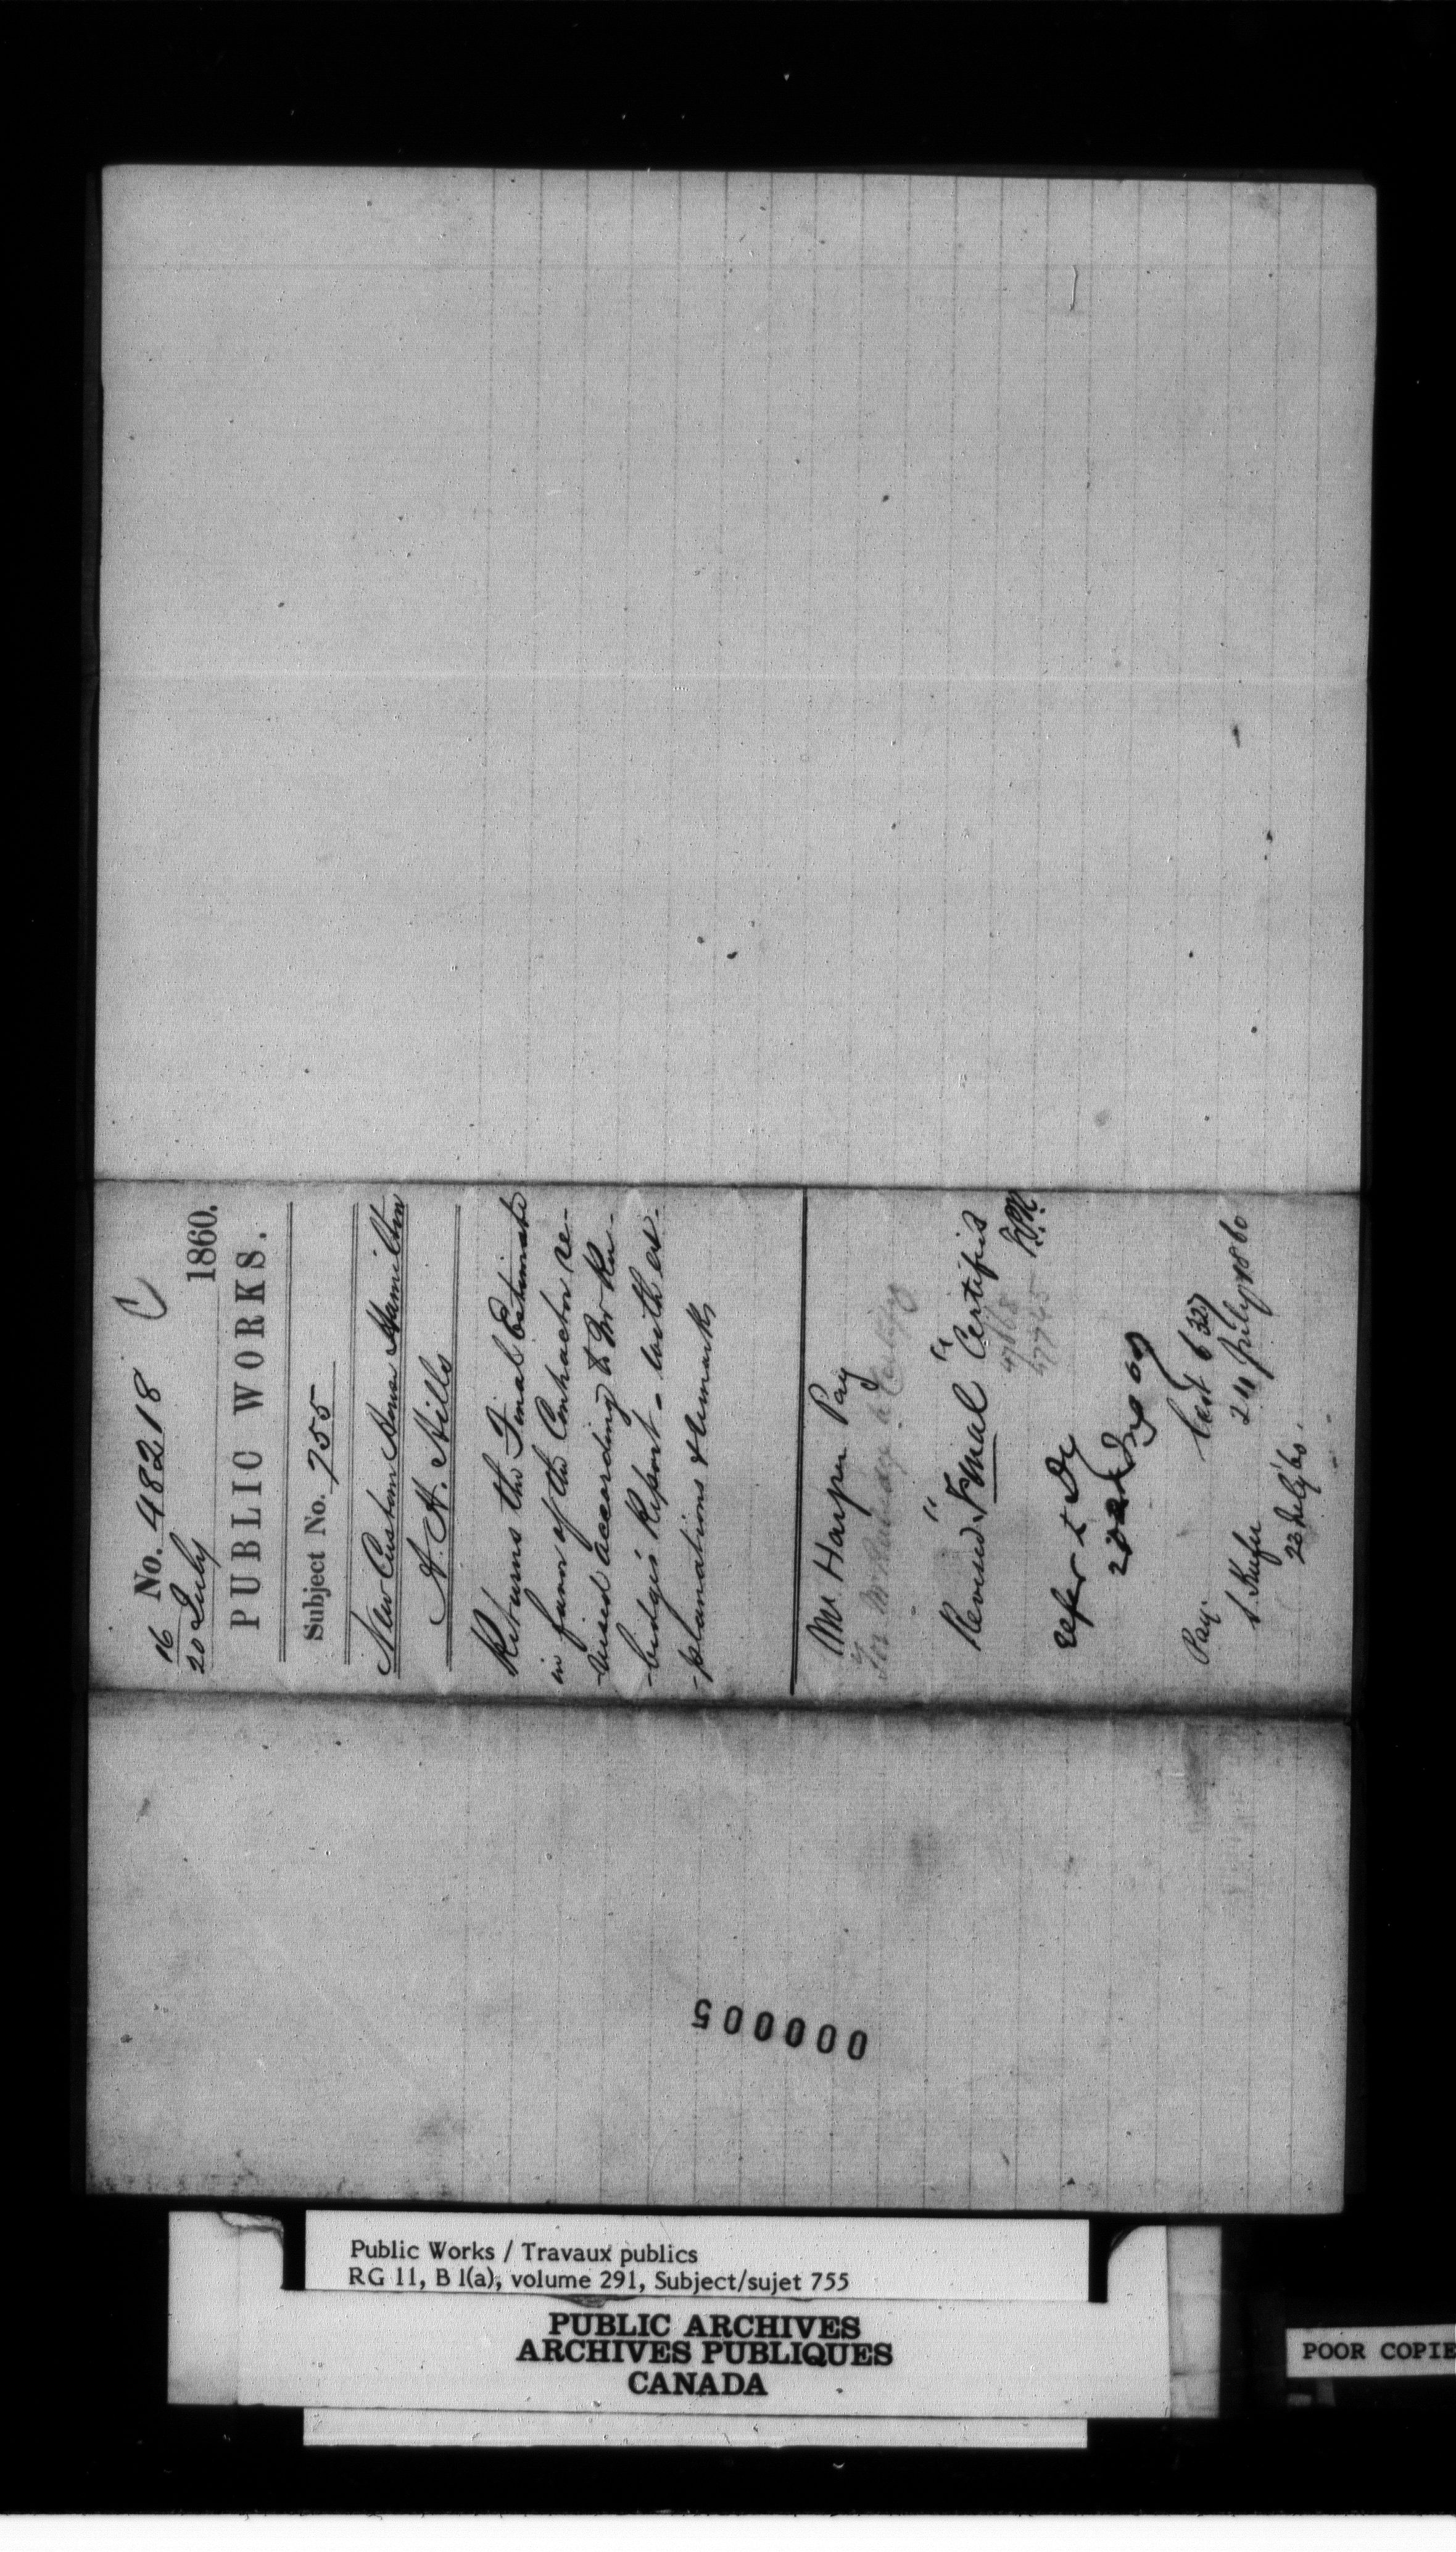 No. 48218 C
16
20 July 1860.
PUBLIC WORKS.
Subject No. 755
New Custom House Hamilton
A. H. Hills
Returns the Final Estimate
in favor of the Contractor re-
-vised according to Mr Ru-
-bidge's Report - with ex-
-planations & remarks
Mr. Harper Pay
For Mr Rubidge to Certify
" "
Revised Final Certificate
47745
refer to
Pay. Cert 6327
24 July 1860
23 July '60.
000005
Public Works / Travaux publics
RG 11, B 1(a), volume 291, Subject/sujet 755
PUBLIC ARCHIVES
ARCHIVES PUBLIQUES
CANADA
POOR COPIE